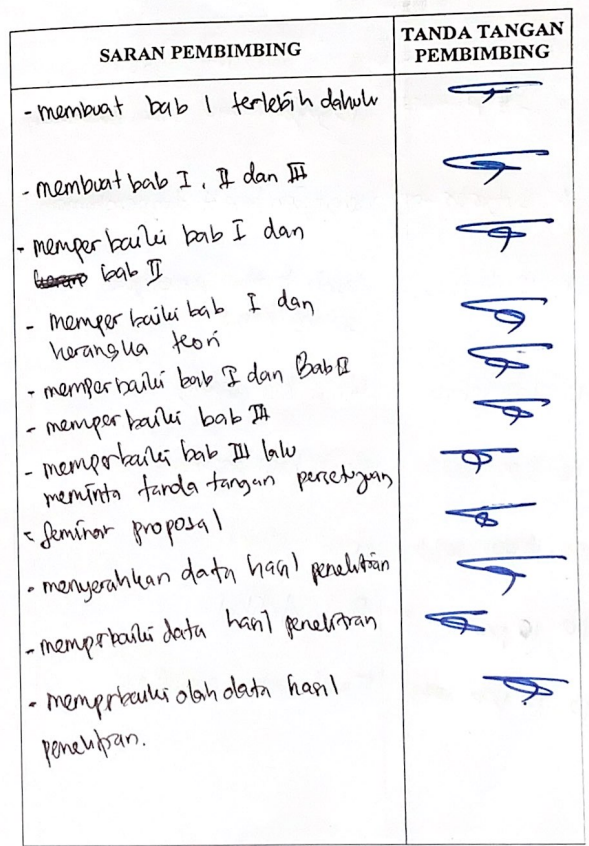 SARAN PEMBIMBING
TANDA TANGAN
PEMBIMBING
- membuat bab 1 terlebih dahulu
- membuat bab I, II dan III
- memperbaiki bab I dan
bab II
- memperbaiki bab I dan
kerangka teori
- memperbaiki bab I dan Bab II
- memperbaiki bab III
- memperbaiki bab III lalu
meminta tanda tangan persetujuan
- Seminar proposal
- menyerahkan data hasil penelitian
- memprbaiki data hasil penelitian
- memprbaiki olah data hasil
penelitian.